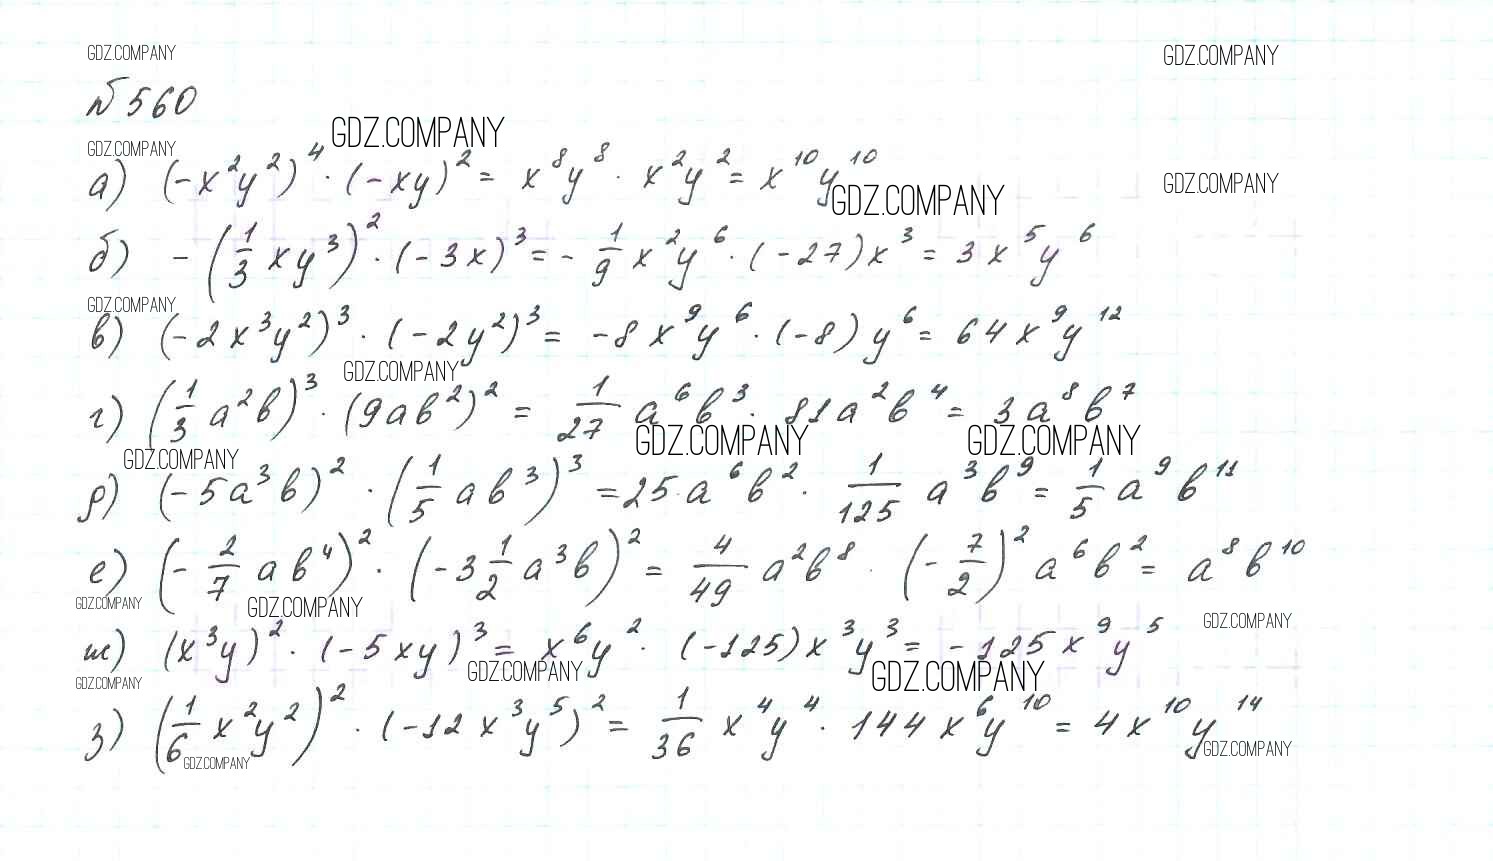 GDZ.COMPANY GDZ.COMPANY
№560
GDZ.COMPANY GDZ.COMPANY GDZ.COMPANY
а) (-x²y²)⁴ · (-xy)² = x⁸y⁸ · x²y² = x¹⁰y¹⁰
GDZ.COMPANY
б) -(1/3 xy³)² · (-3x)³ = - 1/9 x²y⁶ · (-27)x³ = 3x⁵y⁶
GDZ.COMPANY
в) (-2x³y²)³ · (-2y²)³ = -8x⁹y⁶ · (-8)y⁶ = 64x⁹y¹²
GDZ.COMPANY
г) (1/3 a²b)³ · (9ab²)² = 1/27 a⁶b³ · 81a²b⁴ = 3a⁸b⁷
GDZ.COMPANY GDZ.COMPANY GDZ.COMPANY
д) (-5a³b)² · (1/5 ab³)³ = 25·a⁶b² · 1/125 a³b⁹ = 1/5 a⁹b¹¹
е) (-2/7 ab⁴)² · (-3 1/2 a³b)² = 4/49 a²b⁸ · (-7/2)² a⁶b² = a⁸b¹⁰
GDZ.COMPANY GDZ.COMPANY GDZ.COMPANY
ж) (x³y)² · (-5xy)³ = x⁶y² · (-125)x³y³ = -125x⁹y⁵
GDZ.COMPANY GDZ.COMPANY GDZ.COMPANY
з) (1/6 x²y²)² · (-12x³y⁵)² = 1/36 x⁴y⁴ · 144x⁶y¹⁰ = 4x¹⁰y¹⁴
GDZ.COMPANY GDZ.COMPANY